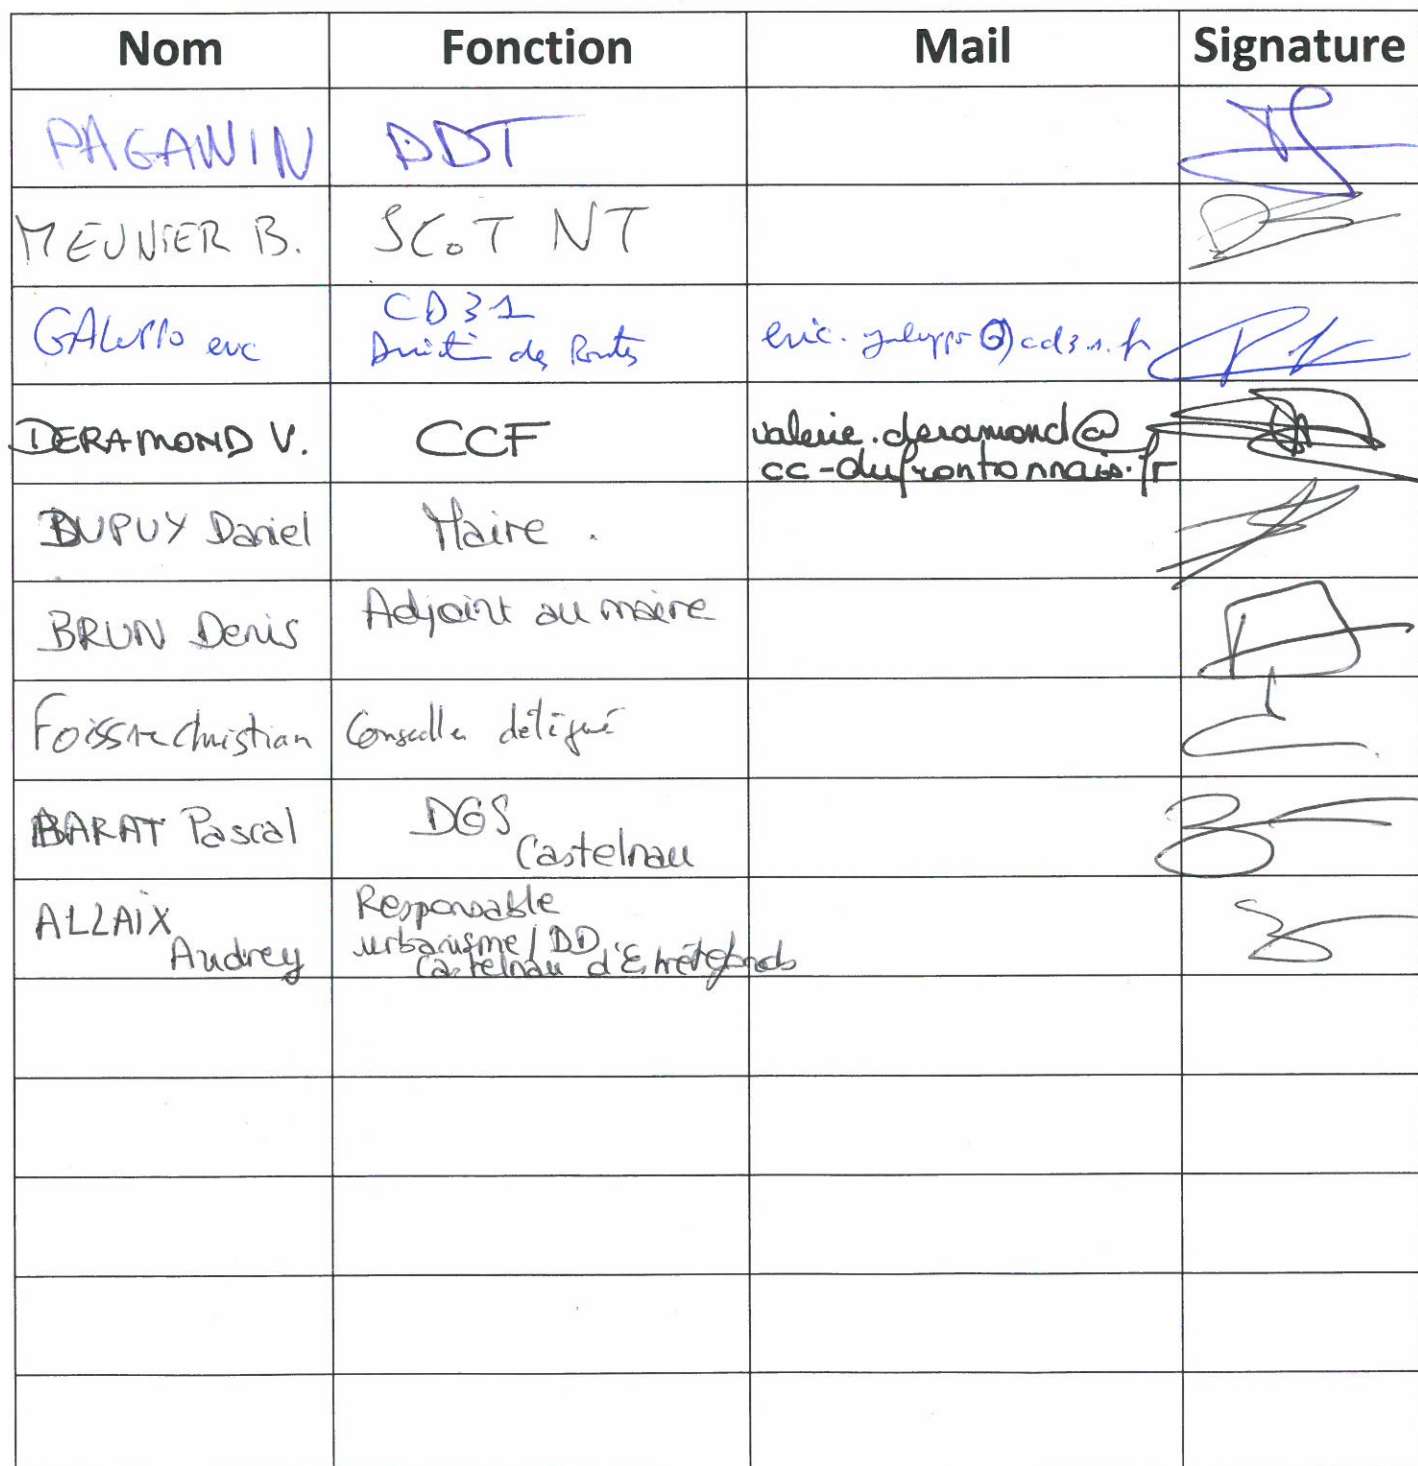 Nom Fonction Mail Signature
PAGANIN DDT
MEUNIER B. SCoT NT
GALUPPO eric CD31
Direction des Routes eric.galuppo@cd31.fr
DERAMOND V. CCF valerie.deramond@
cc-dufrontonnais.fr
DUPUY Daniel Maire.
BRUN Denis Adjoint au maire
Christian Conseiller délégué
BARAT Pascal DGS
Castelnau
ALLAIX Responsable
Audrey urbanisme/DD
Castelnau d'Estrétefonds